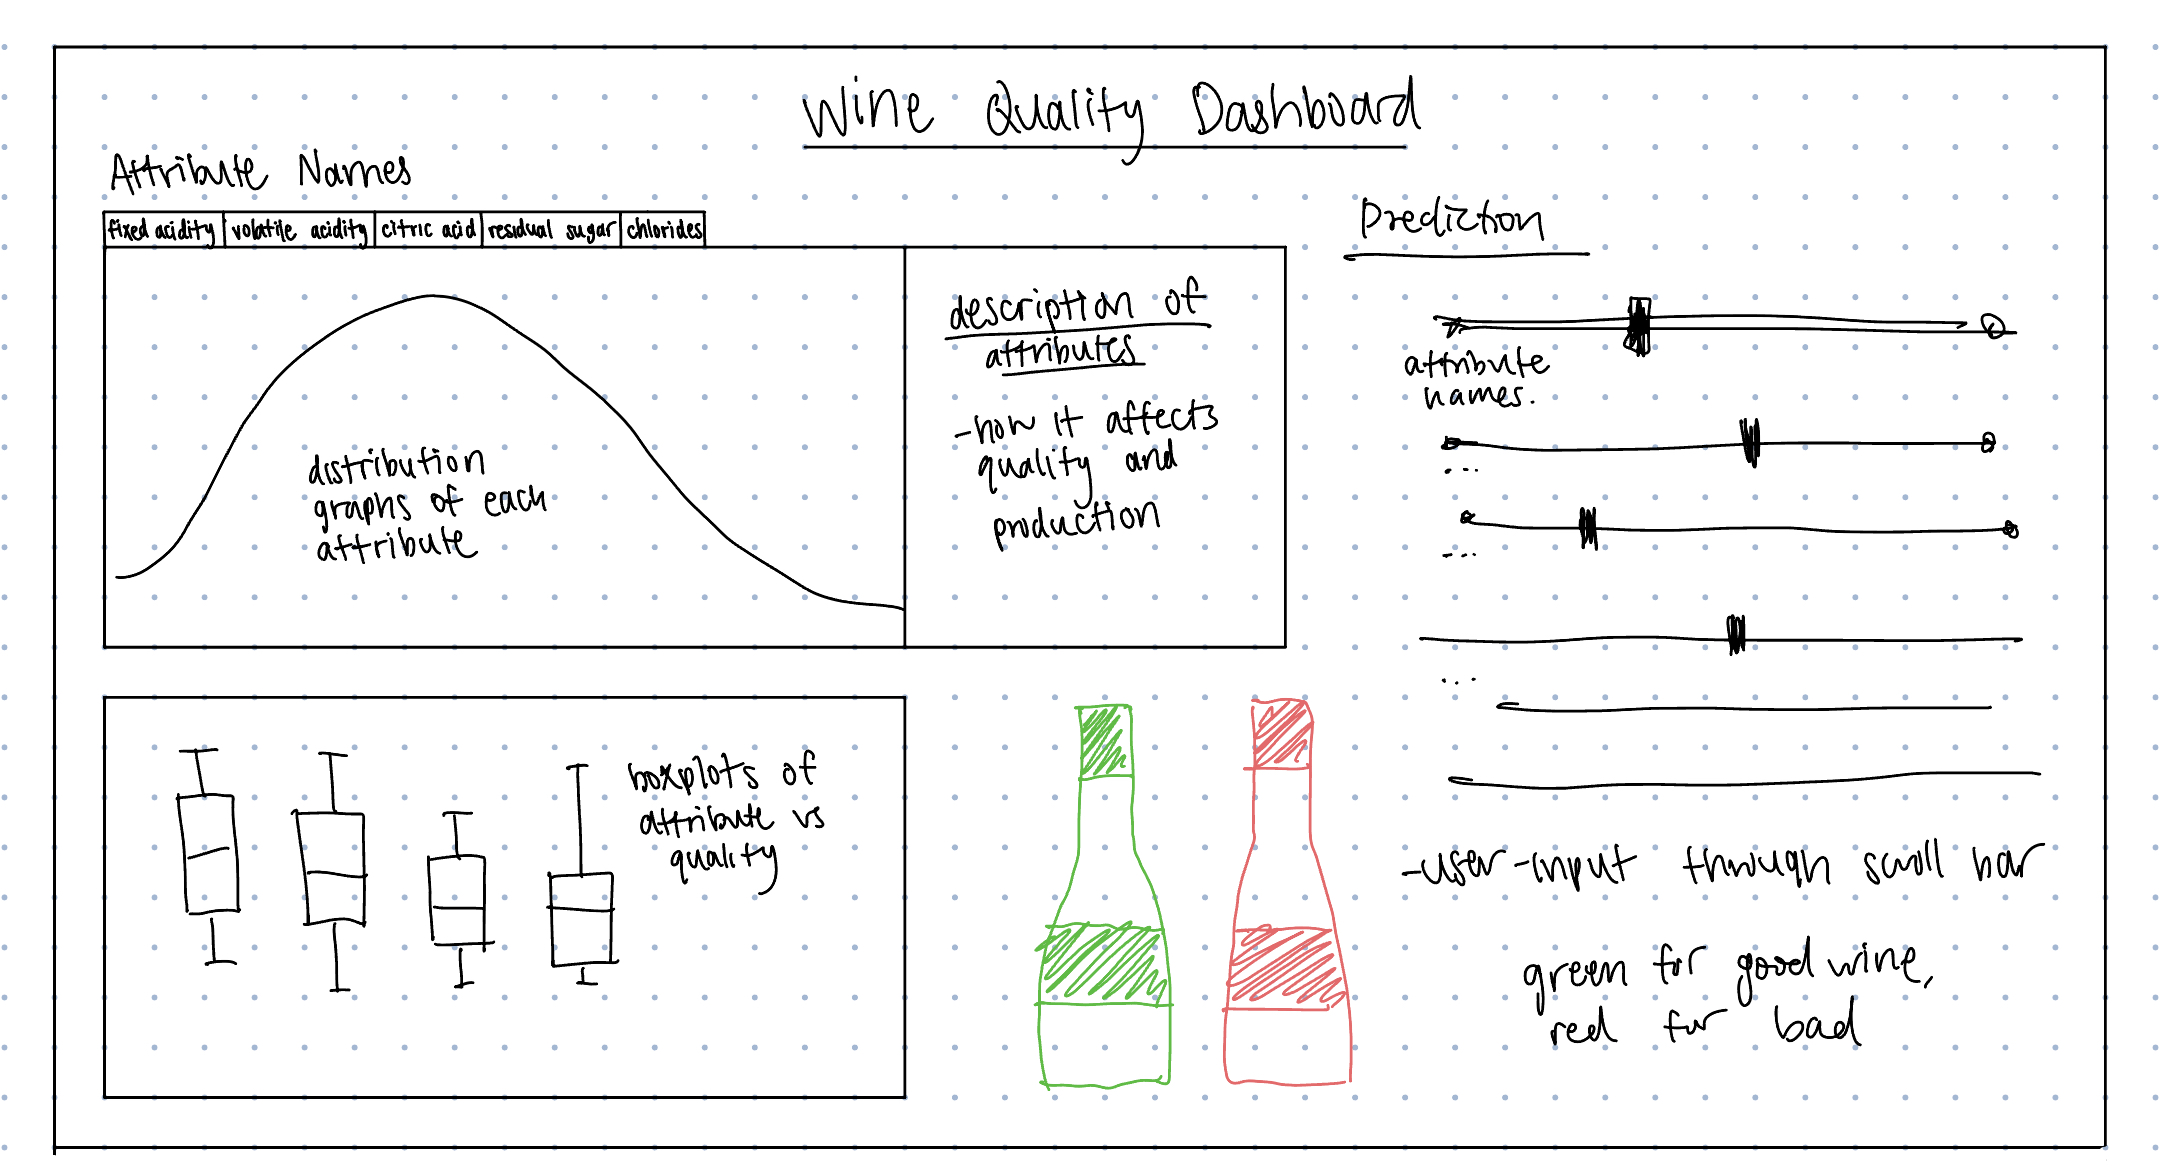 Wine Quality Dashboard
Attribute Names
fixed acidity volatile acidity citric acid residual sugar chlorides
distribution
graphs of each
attribute
description of
attributes
-how it affects
quality and
production
Prediction
attribute
names.
....
....
...
boxplots of
attribute vs
quality
-user-input through scroll bar
green for good wine,
red for bad